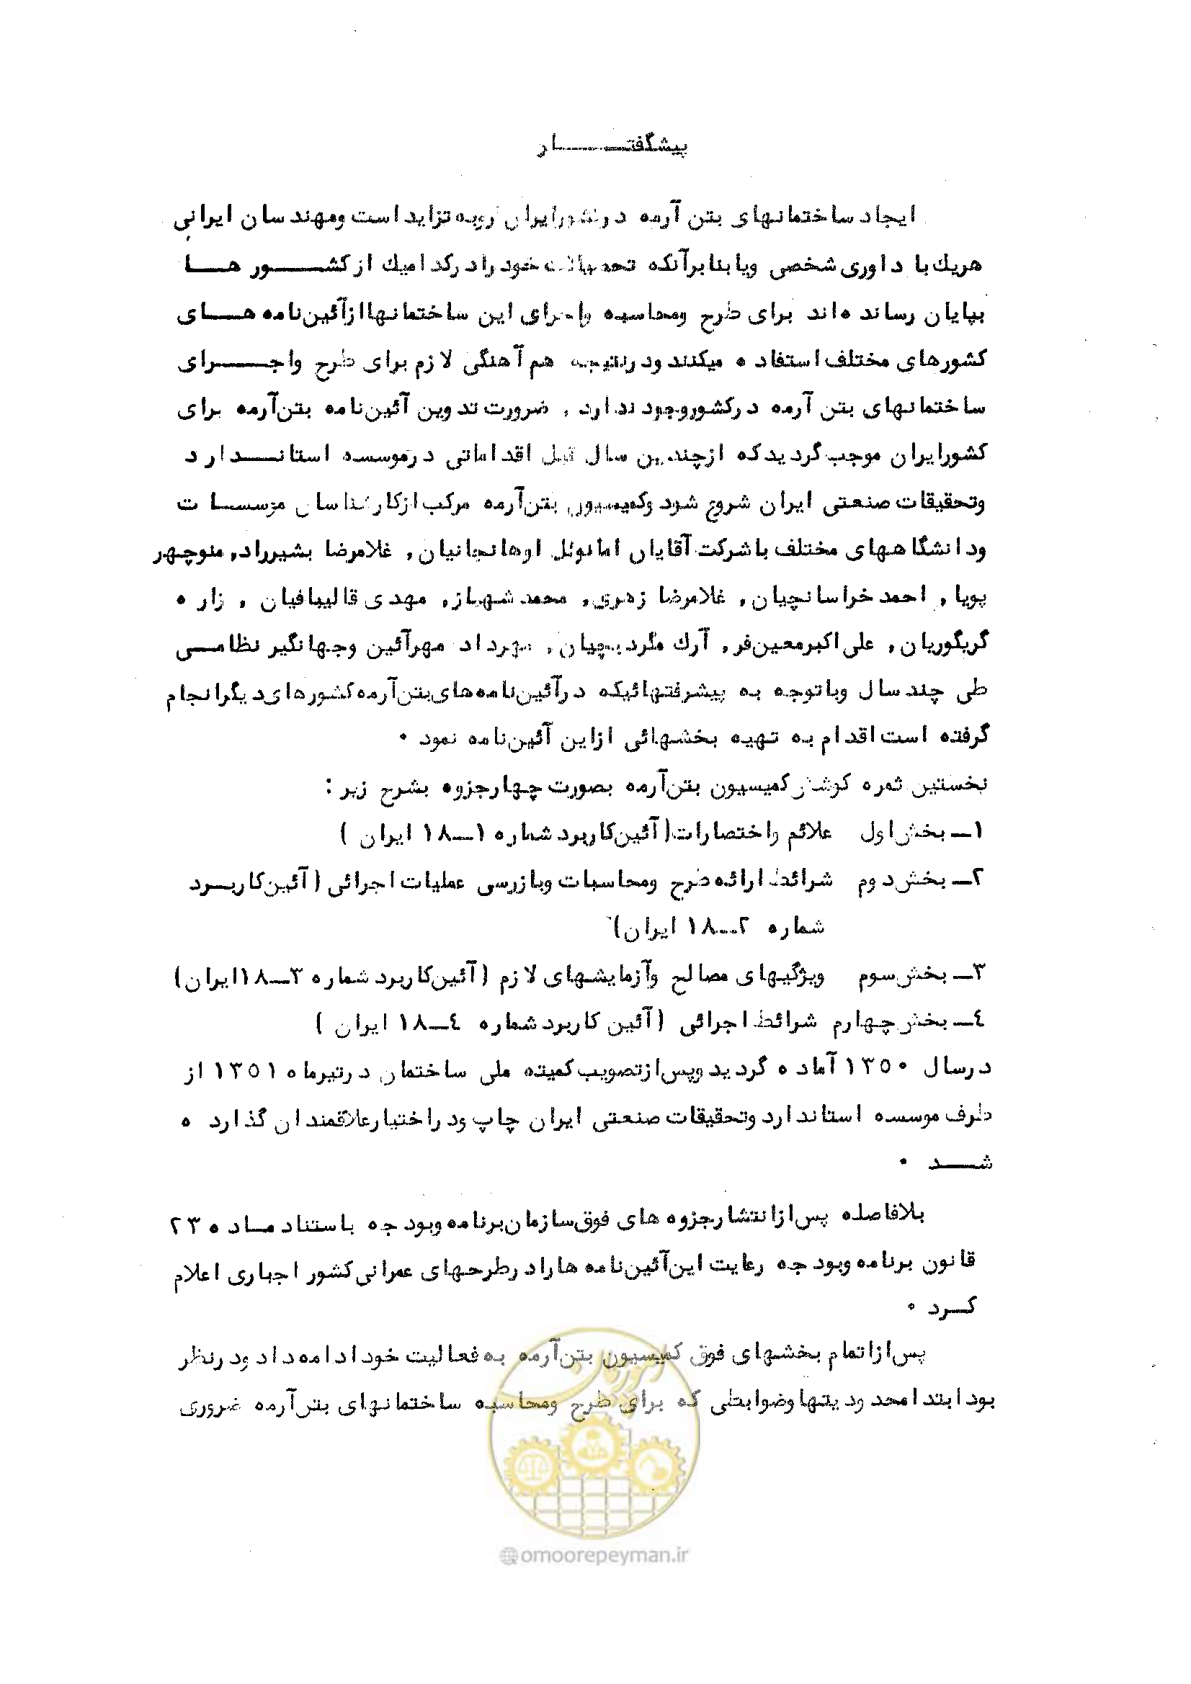 پیشگفتــــار
ایجاد ساختمانهای بتن آرمه در کشور ایران روبه تزاید است ومهندسان ایرانی
هریك با داوری شخصی ویا بنابرآنکه تحصیلات خود را درکدامیك ازکشـــور هـــا
بپایان رسانده اند برای طرح ومحاسبه واجرای این ساختمانها ازآئین‌نامه هـــای
کشورهای مختلف استفاده میکنند ودرنتیجه هم آهنگی لازم برای طرح واجــــرای
ساختمانهای بتن آرمه درکشور وجود ندارد , ضرورت تدوین آئین‌نامه بتن‌آرمه برای
کشور ایران موجب گردید که ازچندین سال قبل اقداماتی درموسسه استانـــدارد
وتحقیقات صنعتی ایران شروع شود وکمیسیون بتن‌آرمه مرکب ازکارشناسان موسسـات
ودانشگاههای مختلف با شرکت آقایان امانوئل اوهانجانیان, غلامرضا بشیرراد, منوچهر
پویا , احمد خراسانچیان, غلامرضا زهری, محمد شهباز, مهدی قالیبافیان , زاره
گریگوریان, علی‌اکبر معین‌فر, آرك مگردیچیان, مهرداد مهرآئین وجهانگیر نظامـی
طی چند سال وباتوجه به پیشرفتهائیکه درآئین‌نامه‌های بتن‌آرمه کشورهای دیگر انجام
گرفته است اقدام به تهیه بخشهائی ازاین آئین‌نامه نمود ٠
نخستین ثمره کوشش کمیسیون بتن‌آرمه بصورت چهارجزوه بشرح زیر :
۱ـ بخش اول علائم واختصارات(آئین‌کاربرد شماره ۱ـ۱۸ ایران )
۲ـ بخش دوم شرائط ارائه طرح ومحاسبات وبازرسی عملیات اجرائی (آئین‌کاربـرد
شماره ۲ـ۱۸ ایران)
۳ـ بخش سوم ویژگیهای مصالح وآزمایشهای لازم (آئین‌کاربرد شماره ۳ـ۱۸ایران)
٤ـ بخش چهارم شرائط اجرائی (آئین کاربرد شماره ٤ـ۱۸ ایران )
درسال ۱۳۵۰ آماده گردید وپس ازتصویب کمیته ملی ساختمان درتیرماه ۱۳۵۱ از
طرف موسسه استاندارد وتحقیقات صنعتی ایران چاپ ودراختیارعلاقمندان گذارده
شـــد ٠
بلافاصله پس ازانتشارجزوه های فوق سازمان برنامه وبودجه باستناد مـاده ۲۳
قانون برنامه وبودجه رعایت این‌آئین‌نامه ها را درطرحهای عمرانی کشور اجباری اعلام
کــرد ٠
پس ازاتمام بخشهای فوق کمیسیون بتن‌آرمه به فعالیت خود ادامه داد ودرنظر
بود ابتدا محدودیتها وضوابطی که برای طرح ومحاسبه ساختمانهای بتن‌آرمه ضروری
@omoorepeyman.ir